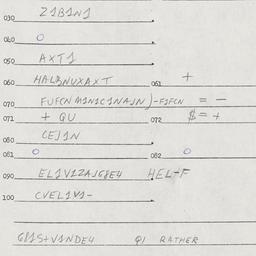 030 Z1B1N1
040 O
050 AXT1
060 HALBNUXAXT 061 +
070 FUFCN M1N1C1NA1N)-F1FCN = -
071 + QU 072 $= +
080 CEJ1N
081 O 082 O
090 EL1V1ZAJG8E4 HEL-F
100 CVEL1V1-
G81S+V1NDE4 Q1 RATHER